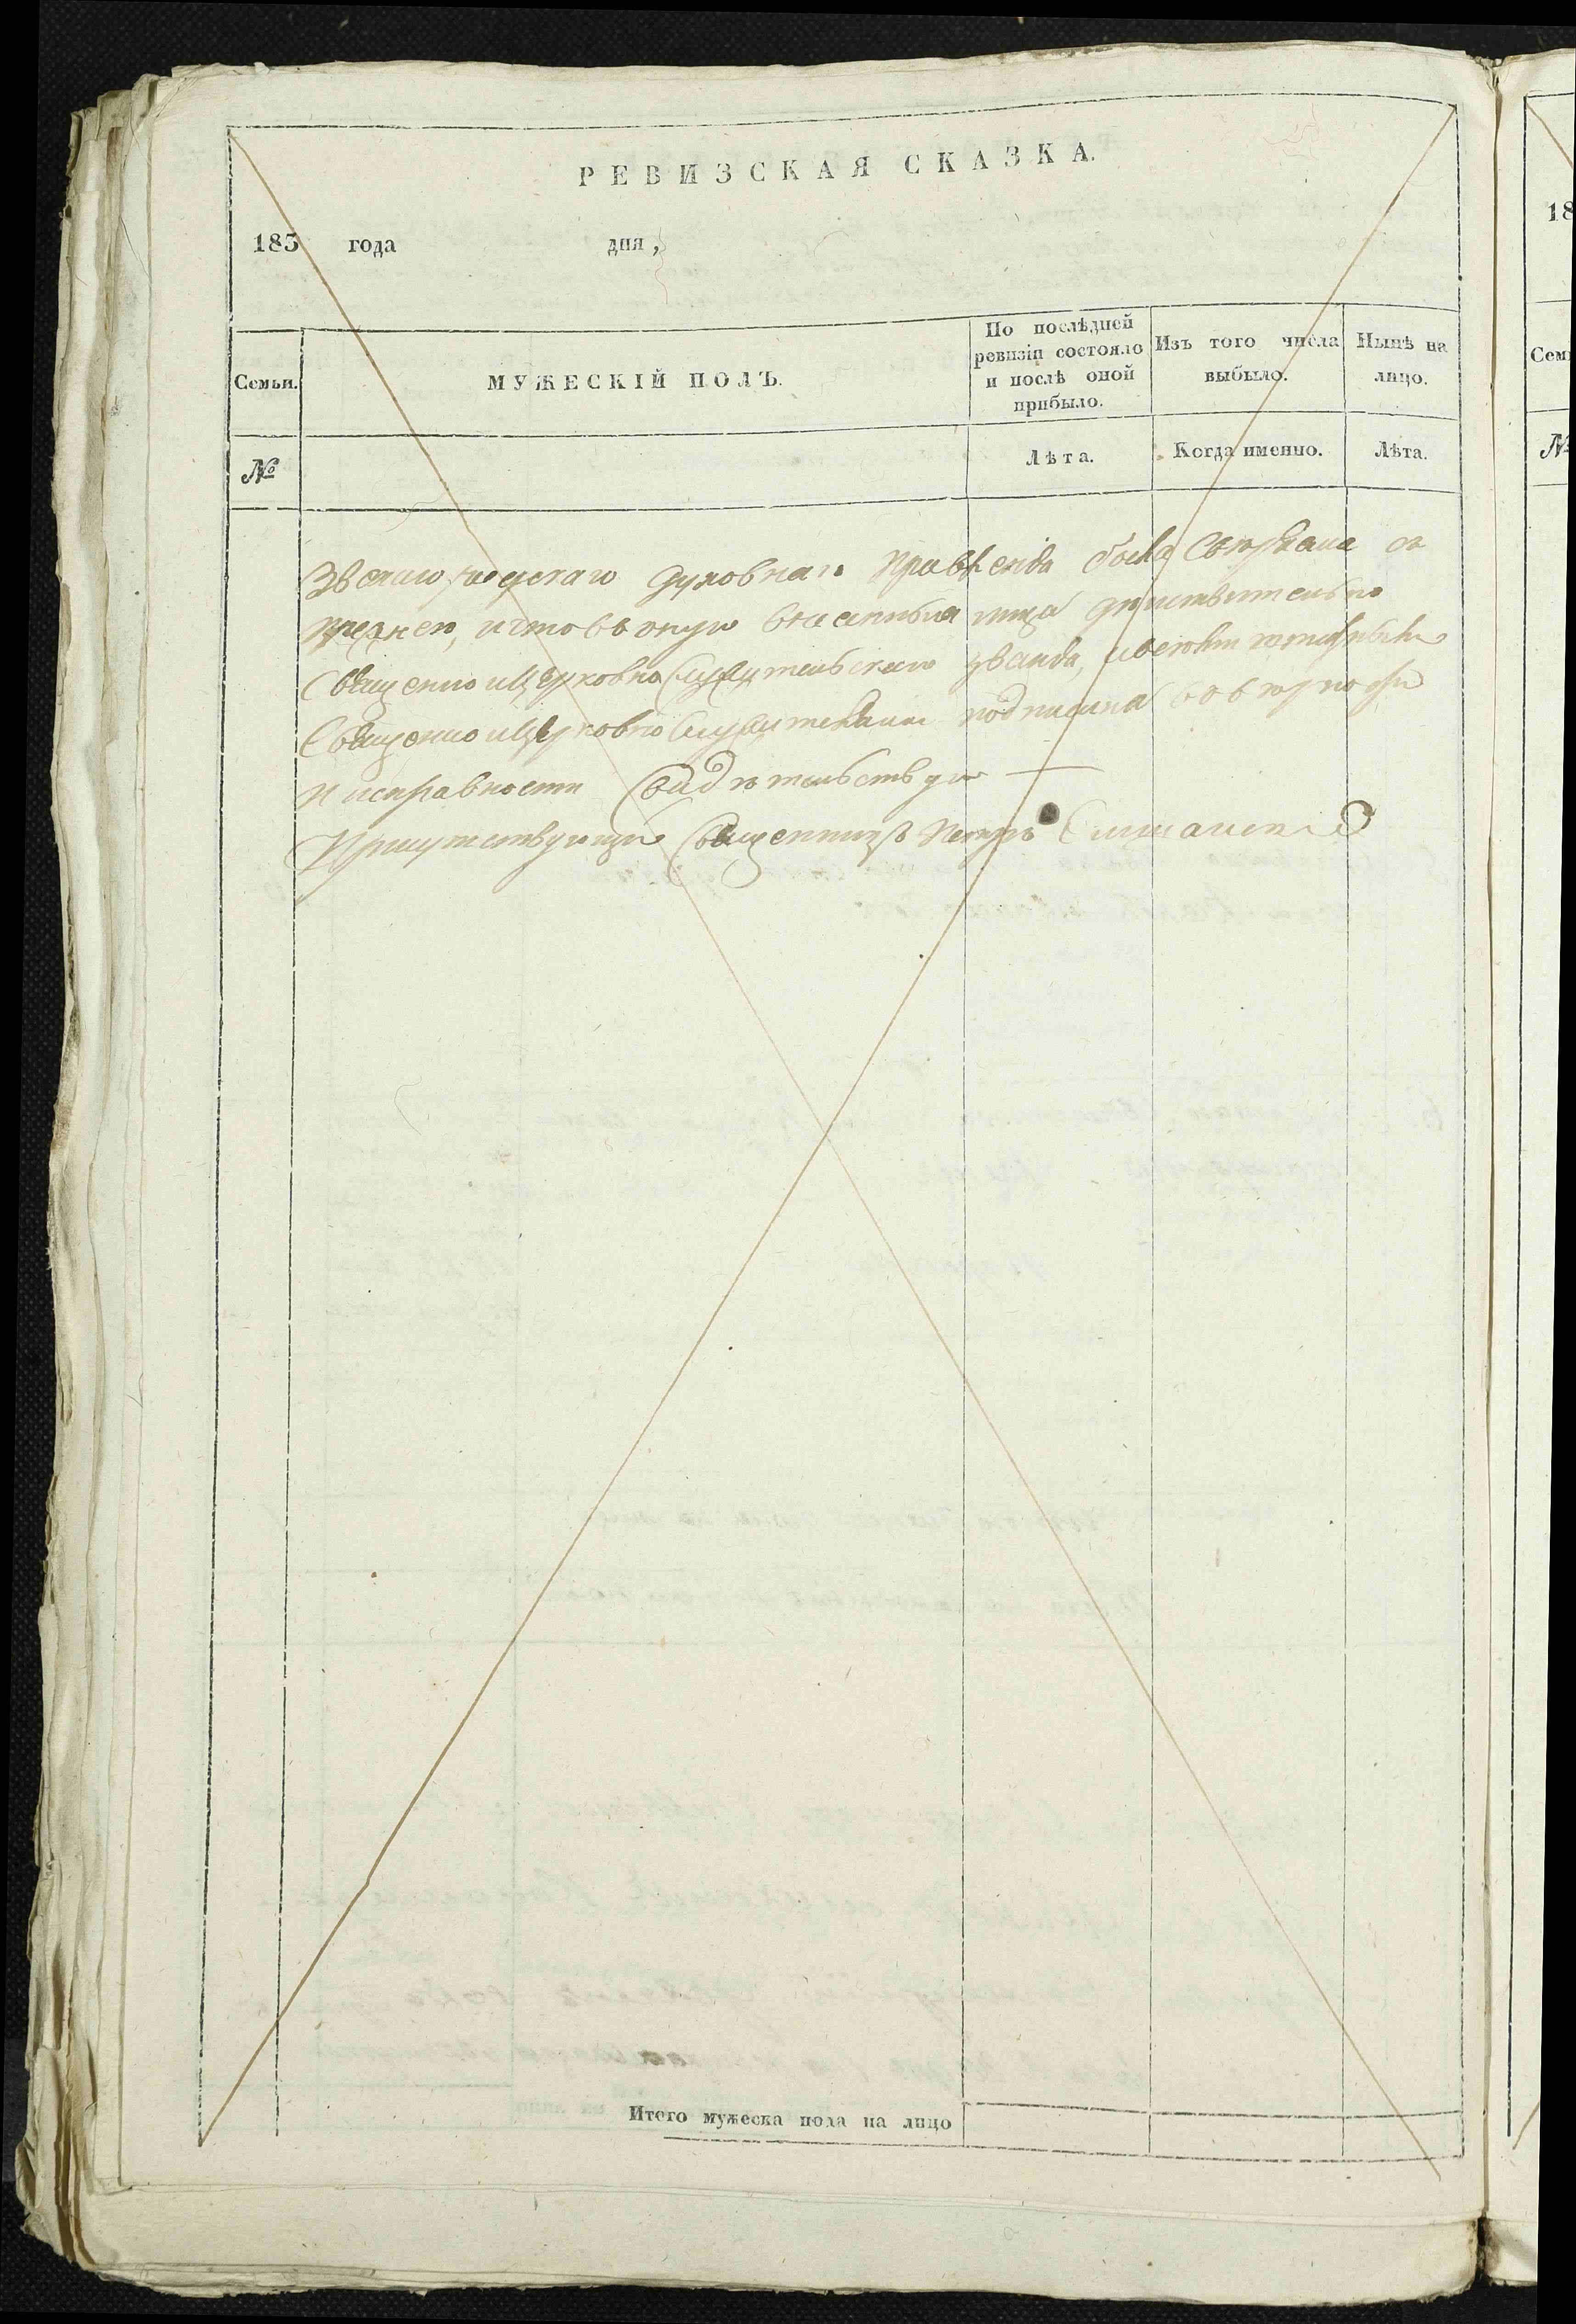 РЕВИЗСКАЯ СКАЗКА.
183 года дня,
Семьи.
МУЖЕСКІЙ ПОЛЪ.
По послѣдней ревизіи состояло и послѣ оной прибыло.
Изъ того числа выбыло.
Нынѣ на лицо.
№
Лѣта.
Когда именно.
Лѣта.
духовнаго Правленія была свѣряема съ
прежнею, и что въ оную внесенныя лица дѣйствительно
Священно и Церковно Служительскаго званія,
Священно и Церковно Служителями подписана во вѣрности
и исправности Свидѣтельствую —
Присутствующій Священникъ Петръ
Итого мужеска пола на лицо
18
Сем
№